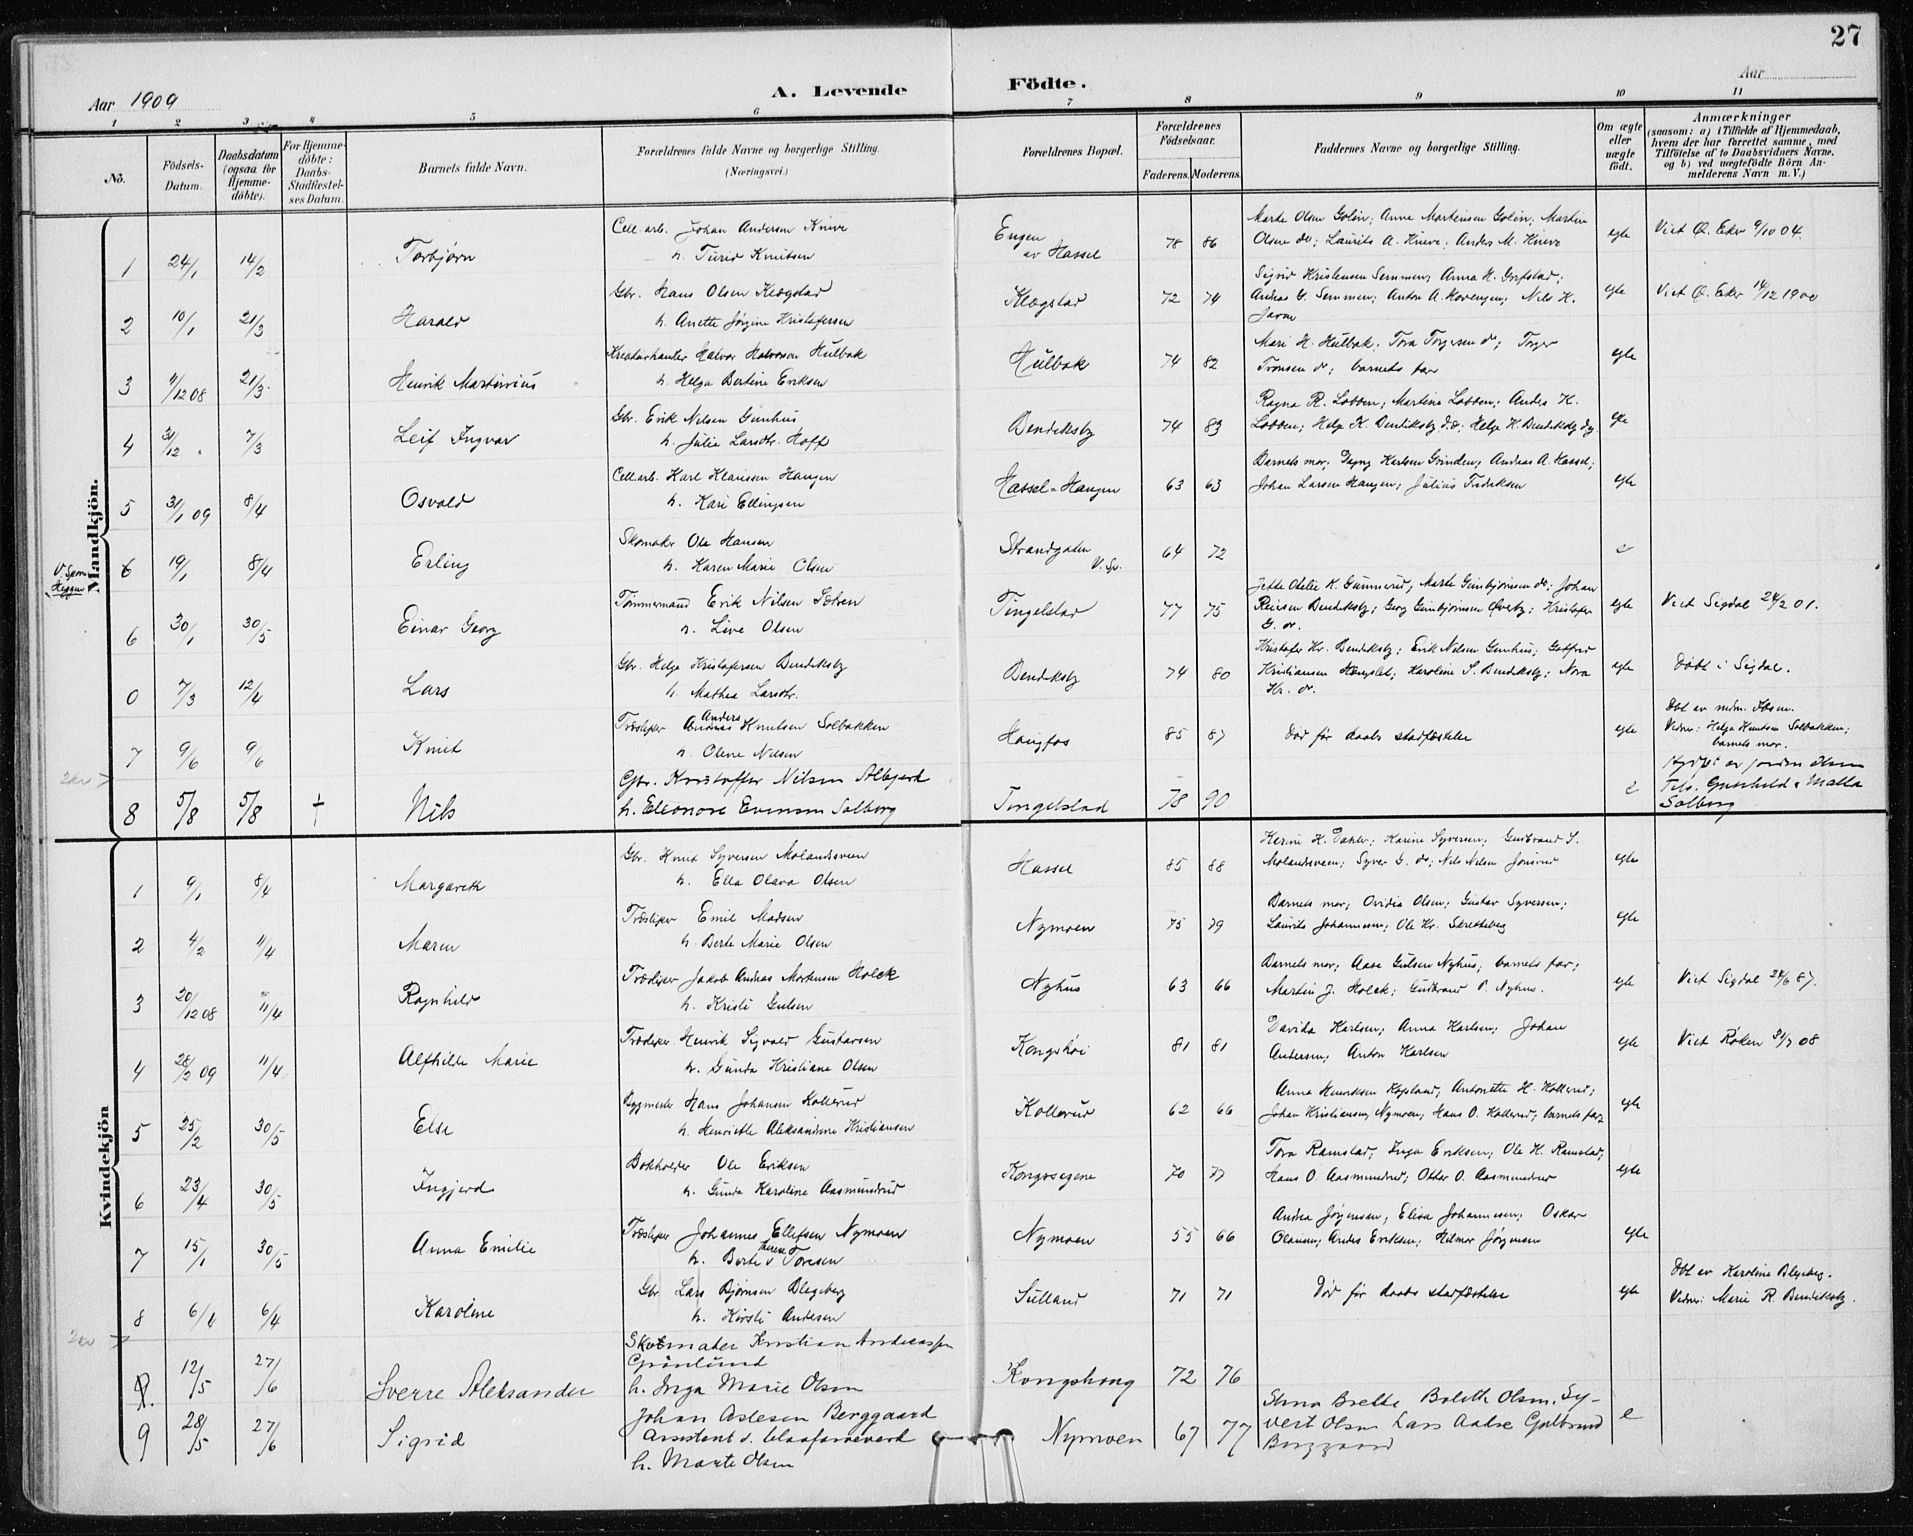 27
Aar 1909
A. Levende Födte.
Aar
1 2 3 4 5 6 7 8 9 10 11
No.
Födsels-Datum.
Daabsdatum (ogsaa for Hjemmedöbte).
For Hjemmedöbte: Daabs-Stadfæstelses Datum.
Barnets fulde Navn.
Forældrenes fulde Navne og borgerlige Stilling. (Næringsvei.)
Forældrenes Bopæl.
Forældrenes Födselsaar.
Faderens. Moderens.
Faddernes Navne og borgerlige Stilling.
Om ægte eller uægte födt.
Anmærkninger (saasom: a) i Tilfælde af Hjemmedaab, hvem der har forrettet samme, med Tilföielse af to Daabsvidners Navne. og b) ved uægtefödte Börn Anmelderens Navn m. V.)
Mandkjön.
Cell.arb. Johan Andersen Knive
Marte Olsen Golin; Anne Mortensen Golin; Martin
1 24/1 14/2 Torbjørn h. Turid Knutsen Engen av Hassel 78 86 Olsen do; Laurits A. Knive; Anders M. Knive egte Viet Ø. Eker 9/10 04.
Gbr. Hans Olsen Klægstad
Sigrid Kristensen Semmen; Anna H.
2 10/1 21/3 Harald h. Anette Jørgine Kristofersen Klægstad 72 74 Andreas G. Semmen; Anton A. Hovengen; Nils H. egte Viet Ø. Eker 14/12 1900
Kreaturhandler Halvor Halvorsen Hulbak
Mari H. Hulbak; Tora Torgersen do; Torger
3 11/12 08 21/3 Henrik Martinius h. Helga Bertine Eriksen Hulbak 74 82 Tronsen do; barnets far egte
Gbr. Erik Nilsen Gunhus
Ragna R. Lobben; Martine Lobben; Anders K.
4 31/12 " 7/3 Leif Ingvar h. Julie Larsdtr. Hoff Bendiksby 74 83 Lobben; Helge K. Bendiksby do; Helge H. Bendiksby egte
Cell.arb. Karl Klaussen Haugen
Barnets mor; Dagny Karlsen Grinden; Andreas A. Hassel;
5 31/1 09 8/4 Osvald h. Kari Ellingsen Hassel-Haugen 63 63 Johan Larsen Haugen; Julius Fredriksen egte
Skomaker Ole Hansen
V. Spone Heggen 6 19/1 8/4 Erling h. Karen Marie Olsen Strandgaten V. Sp. 64 72 e
Tømmermand Erik Nilsen Sætren
Jette Otelie K. Gunnerud; Marte Gunbjørnsen do; Johan
6 30/1 30/5 Einar Georg h. Live Olsen Tingelstad 77 75 Reiersen Bendiksby; Georg Gunbjørnsen Øveby; Kristofer G. do. egte Viet Sigdal 24/2 01.
Gbr. Helge Kristofersen Bendiksby
Kristofer Kr. Bendiksby; Erik Nilsen Gunhus; Gotfred
0 7/3 12/4 Lars h. Mathea Larsdtr. Bendiksby 74 80 Kristiansen Haugslet; Karoline S. Bendiksby; Nora Kr. do. egte Døbt i Sigdal.
Træsliper Andreas Anders Knutsen Solbakken
7 9/6 9/6 Knut h. Oline Nilsen Haugfos 85 87 Død før daabs stadfæstelse egte Dbt av Ibsen. Vidner: Helga Knutsen Solbakken; barnets mor.
2kr
Gbr. Kristoffer Nilsen Albjerk
8 5/8 5/8 + Nils h. Eleonore Evensen Solberg Tingelstad 78 90 e Hjdbt av jordm Olsen Fds. Gunhild & Malla Solberg
Kvindekjön
Gbr. Knut Syversen Molandsveen
Karine H. Dahler; Karine Syversen; Gudbrand S.
1 9/1 8/4 Margareth h. Ella Olava Olsen Hassel 85 88 Molandsveen; Syver G. do; Nils Nilsen Jonsrud egte
Træsliper Emil Madsen
Barnets mor; Ovidia Olsen; Gustav Syversen;
2 4/2 11/4 Maren h. Berte Marie Olsen Nymoen 75 79 Laurits Johannesen; Ole Kr. Skretteberg egte
Træsliper Jakob Andreas Mortensen Holck
Barnets mor; Aase Gulsen Nyhus; barnets far;
3 20/12 08 11/4 Ragnhild h. Kristi Gulsen Nyhus 63 66 Martin J. Holck; Gudbrand P. Nyhus. egte Viet Sigdal 24/6 87.
Træsliper Henrik Sigvald Gustavsen
Davida Karlsen; Anna Karlsen; Johan
4 28/2 09 11/4 Alfhilde Marie h. Gunda Kristiane Olsen Kongshøi 81 81 Andersen; Anton Karlsen egte Viet Røken 31/7 08
Bygmester Hans Johansen Kollerud
Anna Henriksen Kopland; Antonette H. Kollerud;
5 25/2 30/5 Else h. Henriette Aleksandrine Kristiansen Kollerud 62 66 Johan Kristiansen Nymoen; Hans O. Kollerud; barnets far egte
Bokholder Ole Eriksen
Tora Ramstad; Inga Eriksen; Ole H. Ramstad;
6 23/4 30/5 Ingjerd h. Gunda Karoline Aasmundrud Kongssegene 70 77 Hans O. Aasmundrud; Otter O. Aasmundrud egte
Træsliper Johannes Ellefsen Nymoen
Andrea Jørgensen; Elisa Johannesen; Oskar
7 15/1 30/5 Anna Emilie h. Berte Toresen Nymoen 55 66 Olausen; Anders Eriksen; Hilmar Jørgensen egte
Gbr Lars Bjørnsen Blegeberg
8 6/4 6/4 Karoline h. Kirsti Andersen Sulland 71 71 Død før daabs stadfæstelse egte Dbt av Karoline Blegeberg. Vidner: Marie R. Bendiksby.
2kr
Skotmaker Kristian Andreassen Grønlund
12/5 27/6 Sverre Aleksander h. Inga Marie Olsen Kongshaug 72 76
Johan Aslesen Berggaard
Bolette Olsen. Sy-
9 28/5 27/6 Sigrid Assistent v. blaafarveverk Nymoen 67 77 vert Olsen Lars Gulbrand Berggaard e
h. Marte Olsen